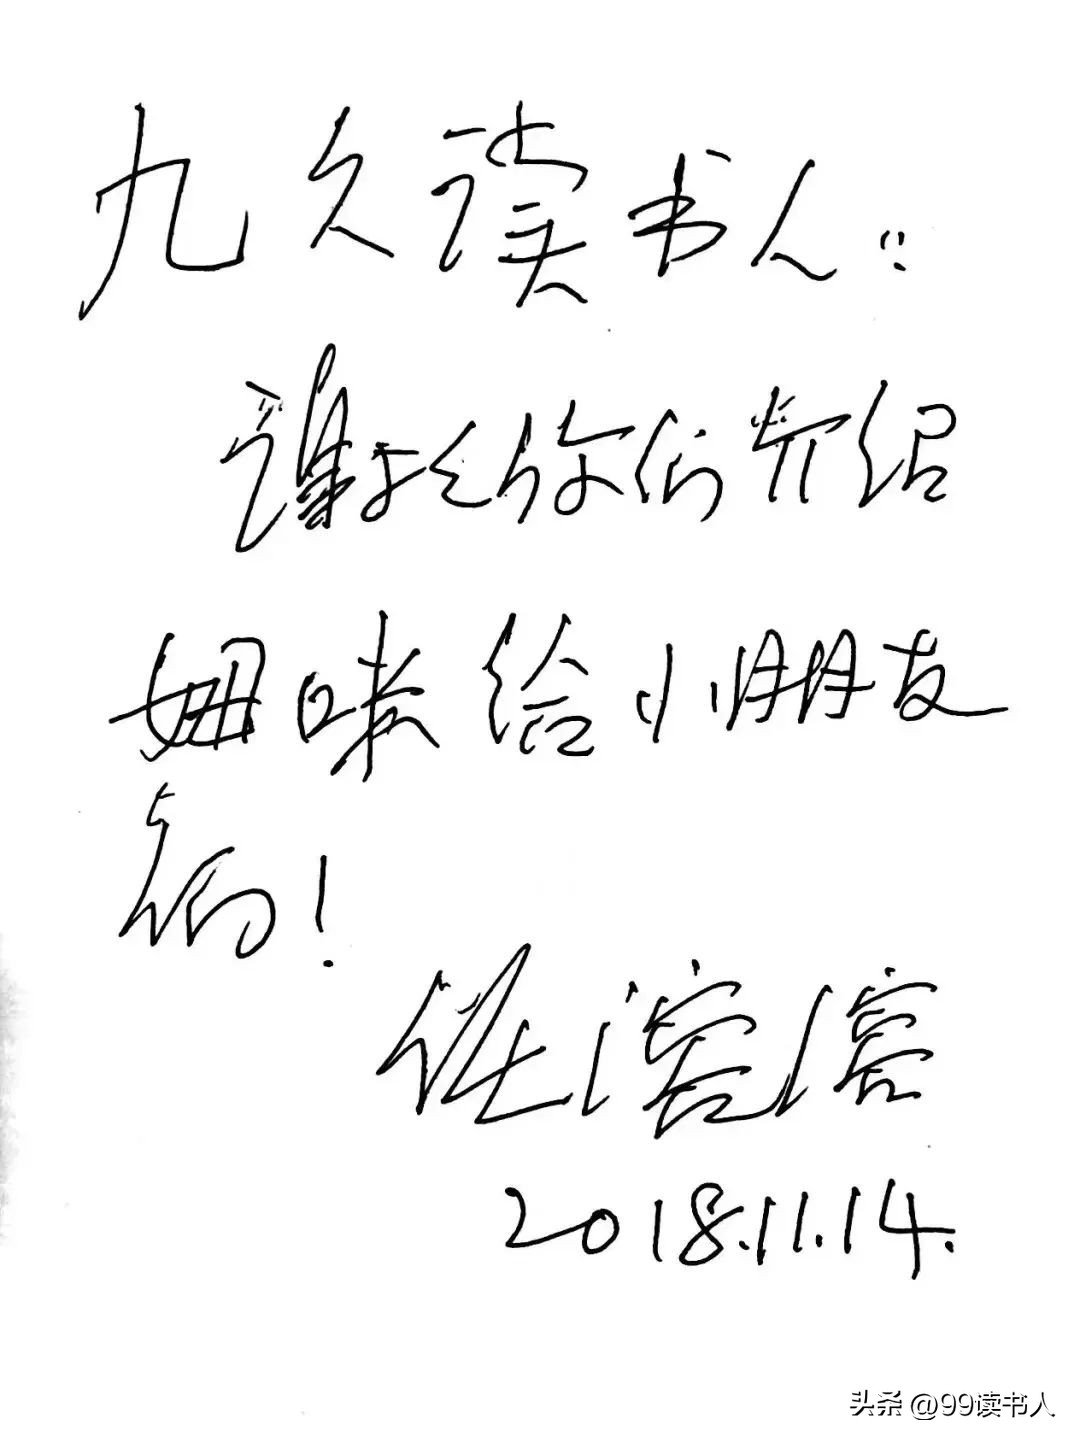 九久读书人:
谢谢你们介绍
妞咪给小朋友
们!
任溶溶
2018.11.14.
头条 @99读书人